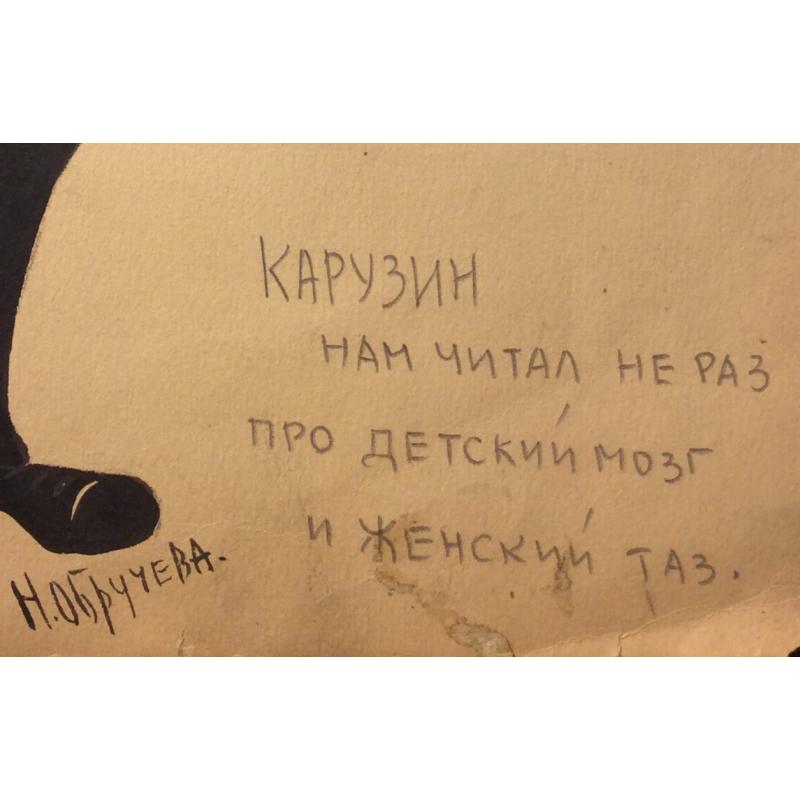 КАРУЗИН
НАМ ЧИТАЛ НЕ РАЗ
ПРО ДЕТСКИЙ МОЗГ
И ЖЕНСКИЙ ТАЗ.
Н. ОБРУЧЕВА.